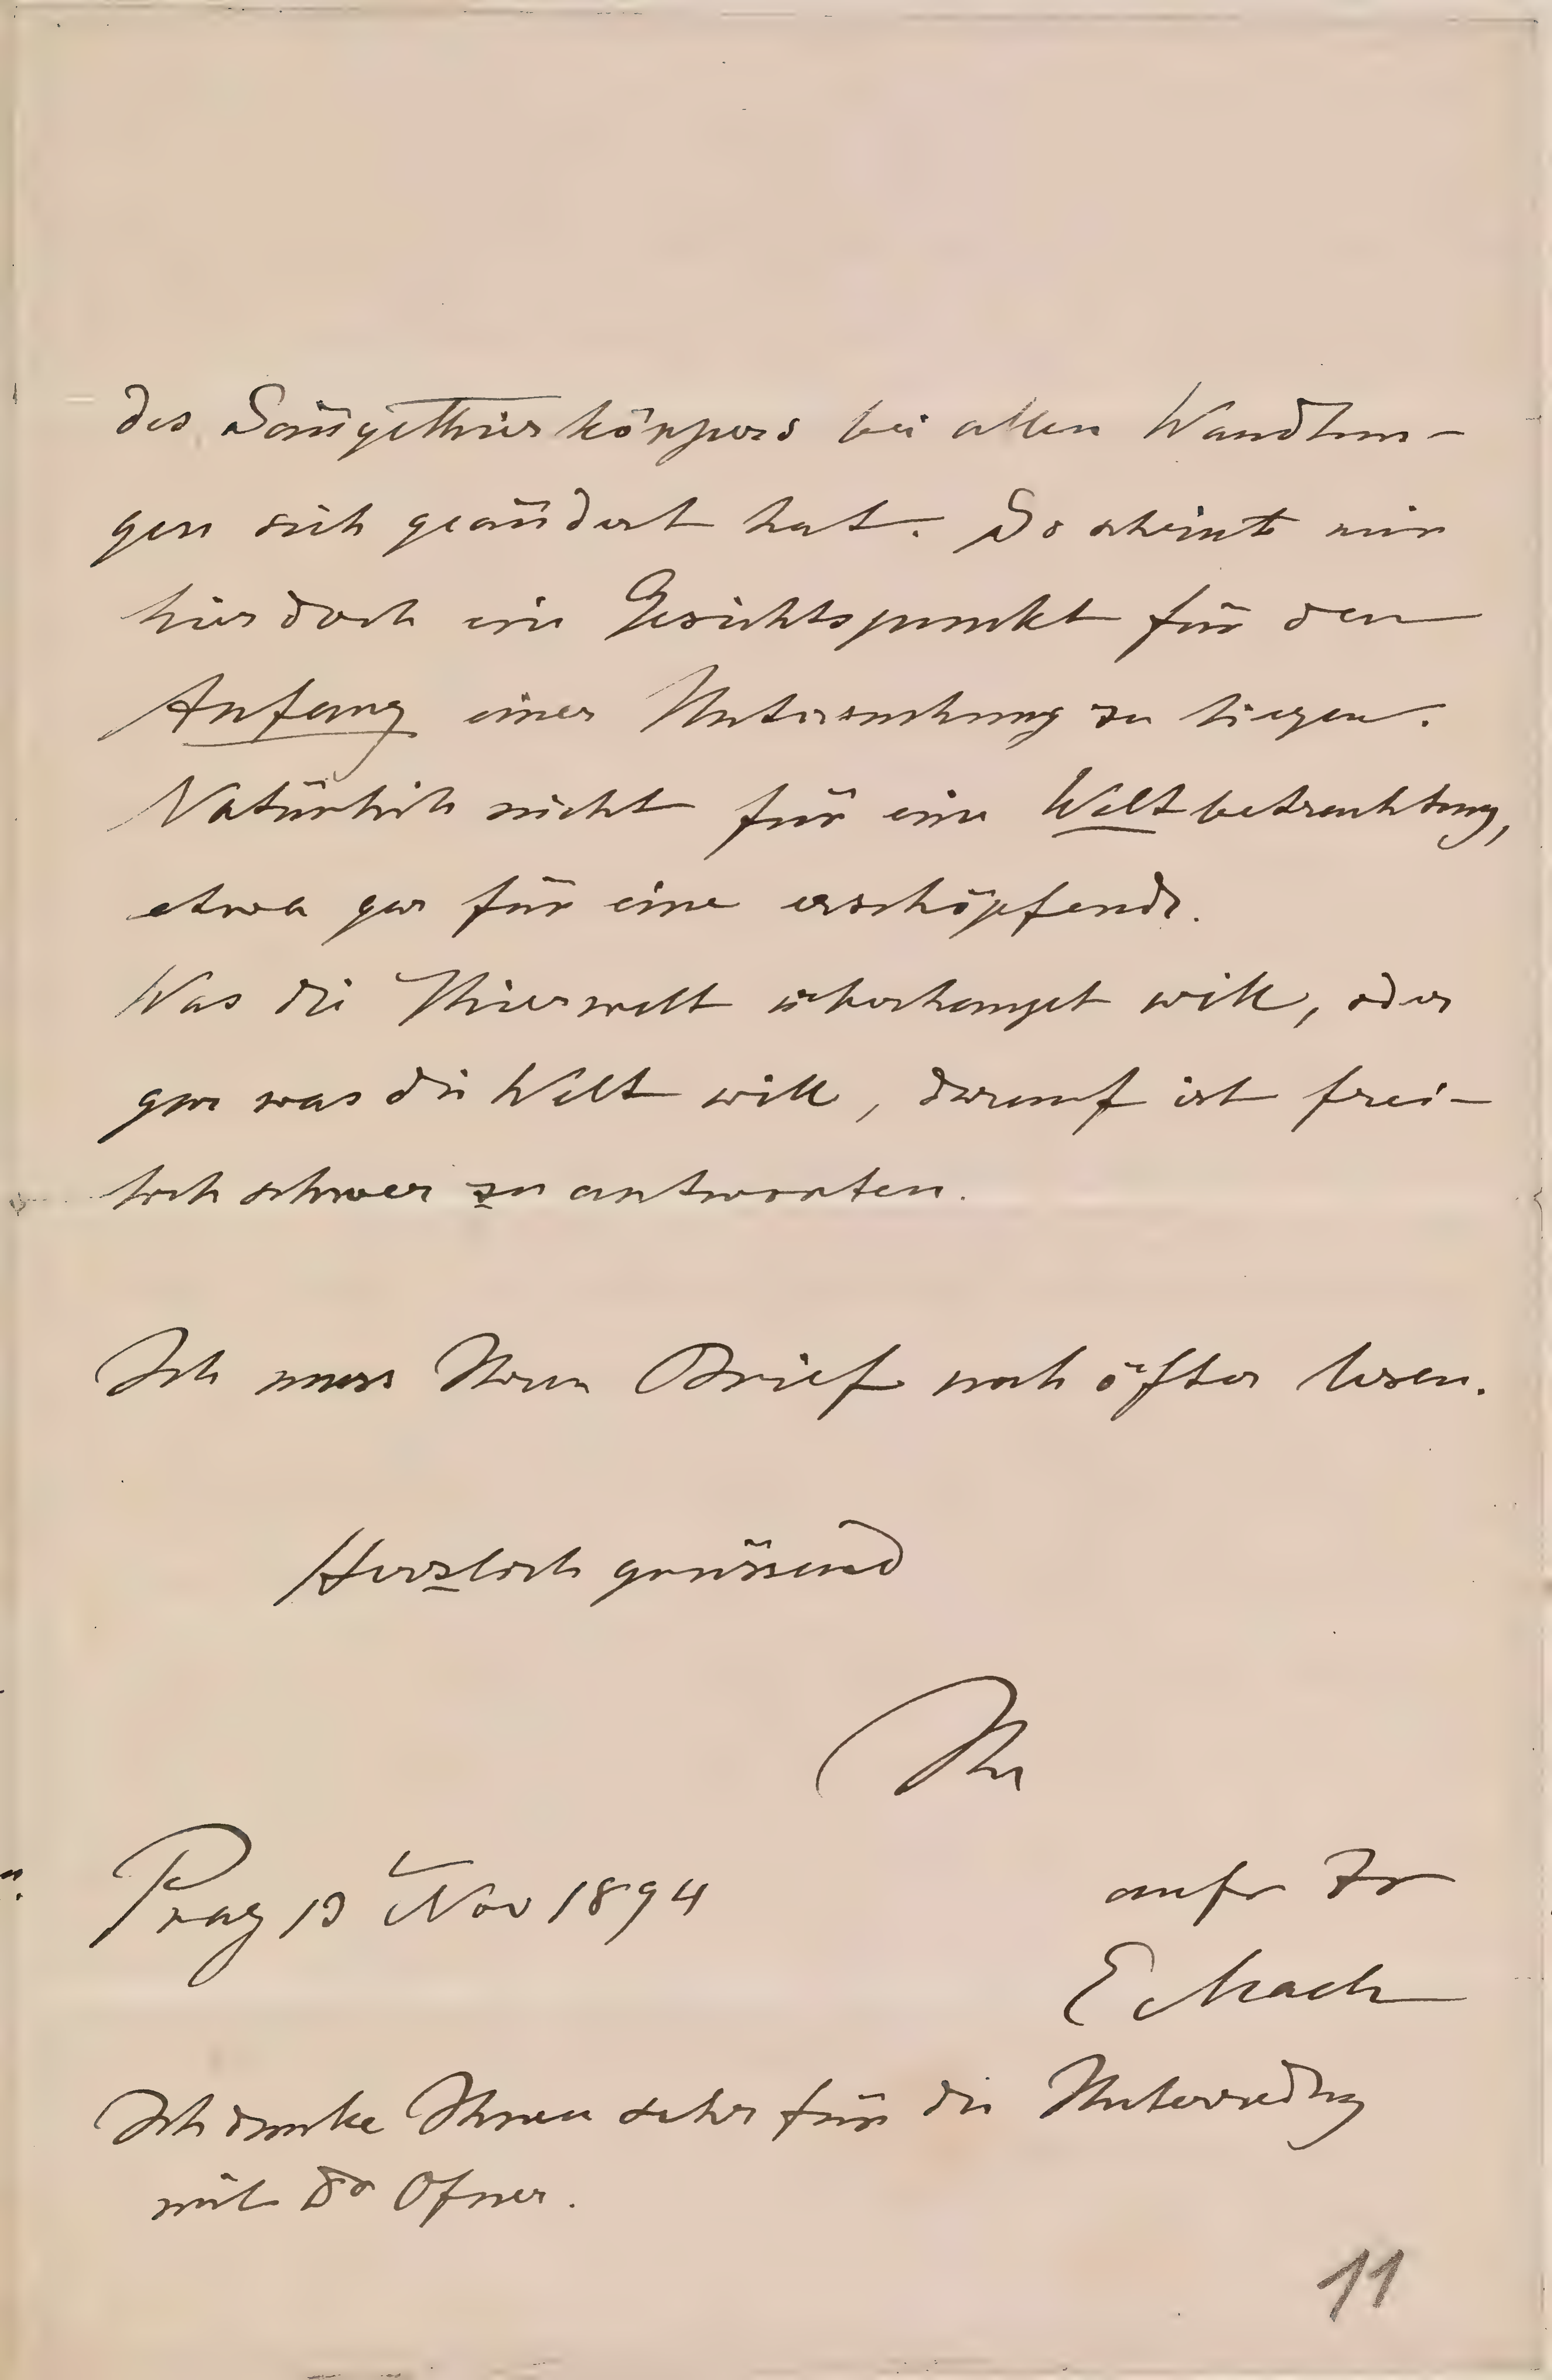 des Säugethierkörpers bei allen Wandlun-
gen sich geändert hat. So scheint mir
hier doch ein Gesichtspunkt für den
Anfang einer Untersuchung zu liegen.
Natürlich nicht für eine Weltbetrachtung,
etwa gar für eine erschöpfende.
Was die Thierwelt überhaupt will, oder
gar was die Welt will, darauf ist frei-
lich schwer zu antworten.
Ich muss Ihren Brief noch öfter lesen.
Herzlich grüssend
Ihr
Prag 13 Nov 1894
E Mach
Ich danke Ihnen sehr für die Unterredung
mit Dr Ofner.
11